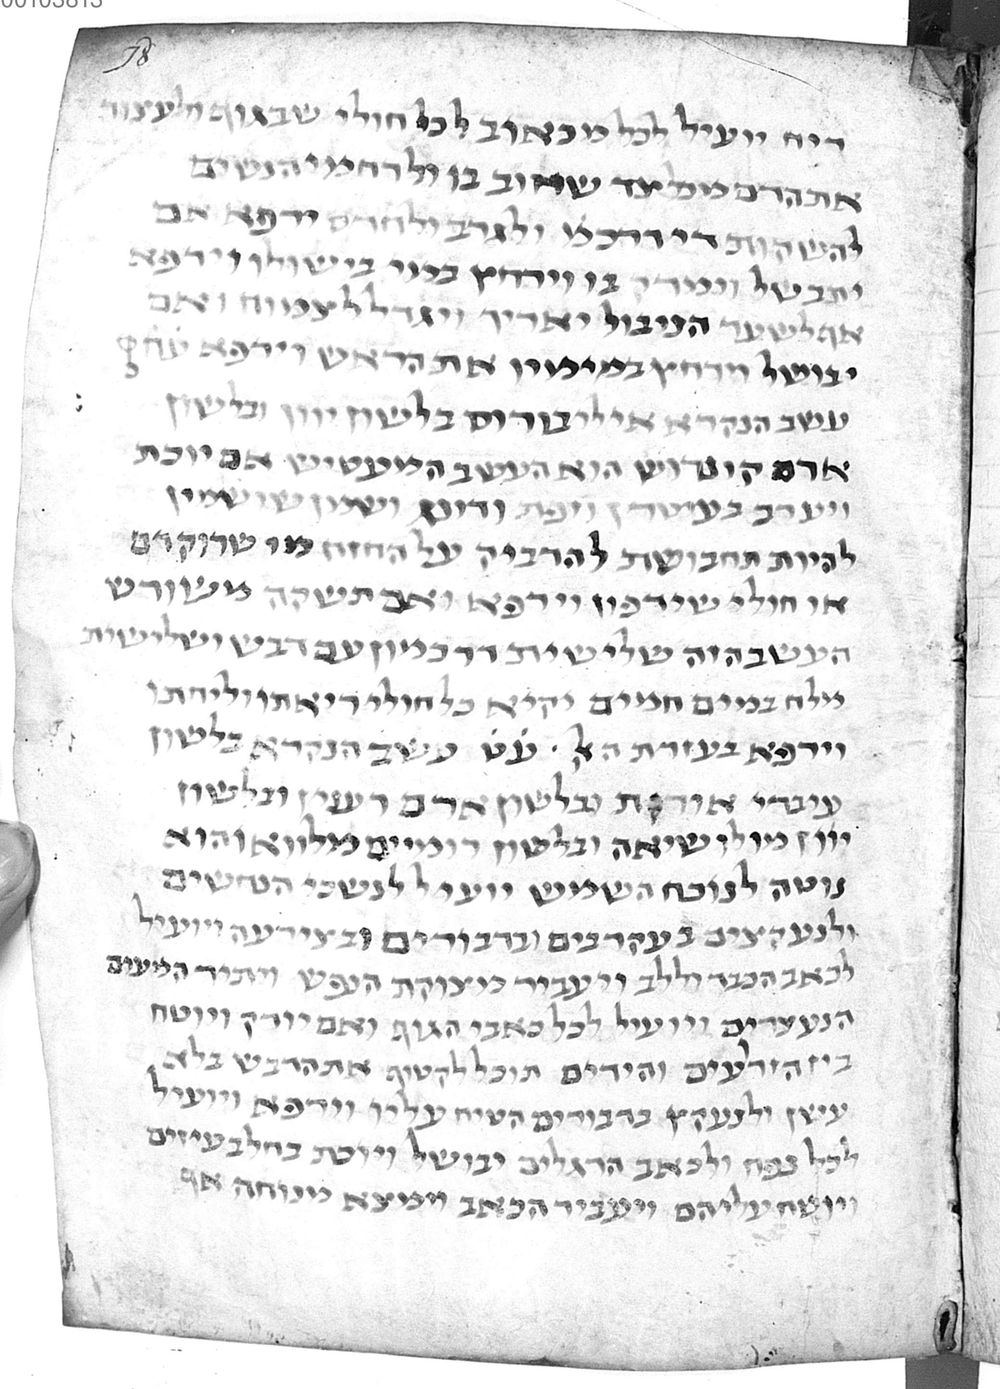 00103813
78
ריח יועיל לכל מכאוב לכל חולי שבגוף ולעצור
את הדם ממ צד שזוב בו ולרחמי הנשים
להשקות ולגרב ולחרס ירפא אם
יתבשל בו וירחץ במי בישולו וירפא
אף לשער הניבול יאריך ויגדל לצמוח ואם
יבושל וירחץ במימיו את הראש וירפא
עשב הנקרא איליבורוס בלשון יוון ובלשון
ארם קונדוש הוא העשב המעטיש אם יוכת
ויערב בעיטרן וזפת ודונג ושמן שומשמין
להיות תחבושת להדביק על החזזח
או חולי שידפון וירפא ואם תשקה משורש
העשב הזה שלישית דרכמון עם דבש ושלישית
מלח במים חמים יקיא כל חולי ריאתו וליחתו
וירפא בעזרת הק׳ עט עשב הנקרא בלשון
עיברי אורנית ובלשון ארם רענין ובלשון
יוון מולושיאה ובלשון רומיים מלווא והוא
נוטה לנוכח השמש יועיל לנשכי הנחשים
ולנעקצים בעקרבים ובדבורים ובצירעה ויועיל
לכאב הכבד וללב ויעביר מצוקת הנפש ויתיר המעים
הנעצרים ויועיל לכל כאבי הגוף ואם יודק ויוטח
בין הזרועים והידים תוכל לקטוף את הדבש בלא
עישן ולנעקץ בדבורים הטיח עליו וירפא ויועיל
לכל נפח ולכאב הרגלים יבושל ויוכת בחלב עיזים
ויוטח עליהם ויעביר הכאב וימצא מנוחה אף